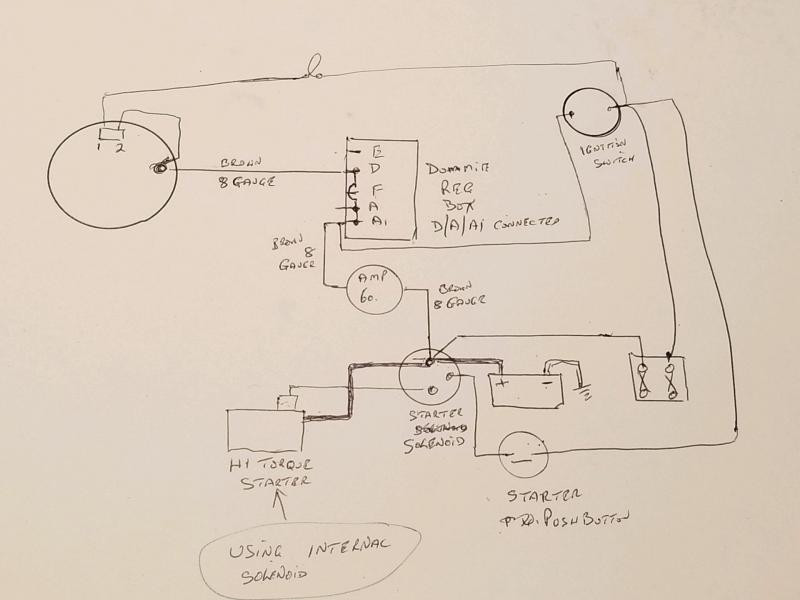 1 2
IGNITION
SWITCH
BROWN
8 GAUGE
E
D
F
A
A1
REG
BOX
D/A/A1 CONNECTED
BROWN
8
GAUGE
AMP
60.
BROWN
8 GAUGE
+ -
STARTER
SOLENOID
HI TORQUE
STARTER
STARTER
PUSH BUTTON
USING INTERNAL
SOLENOID